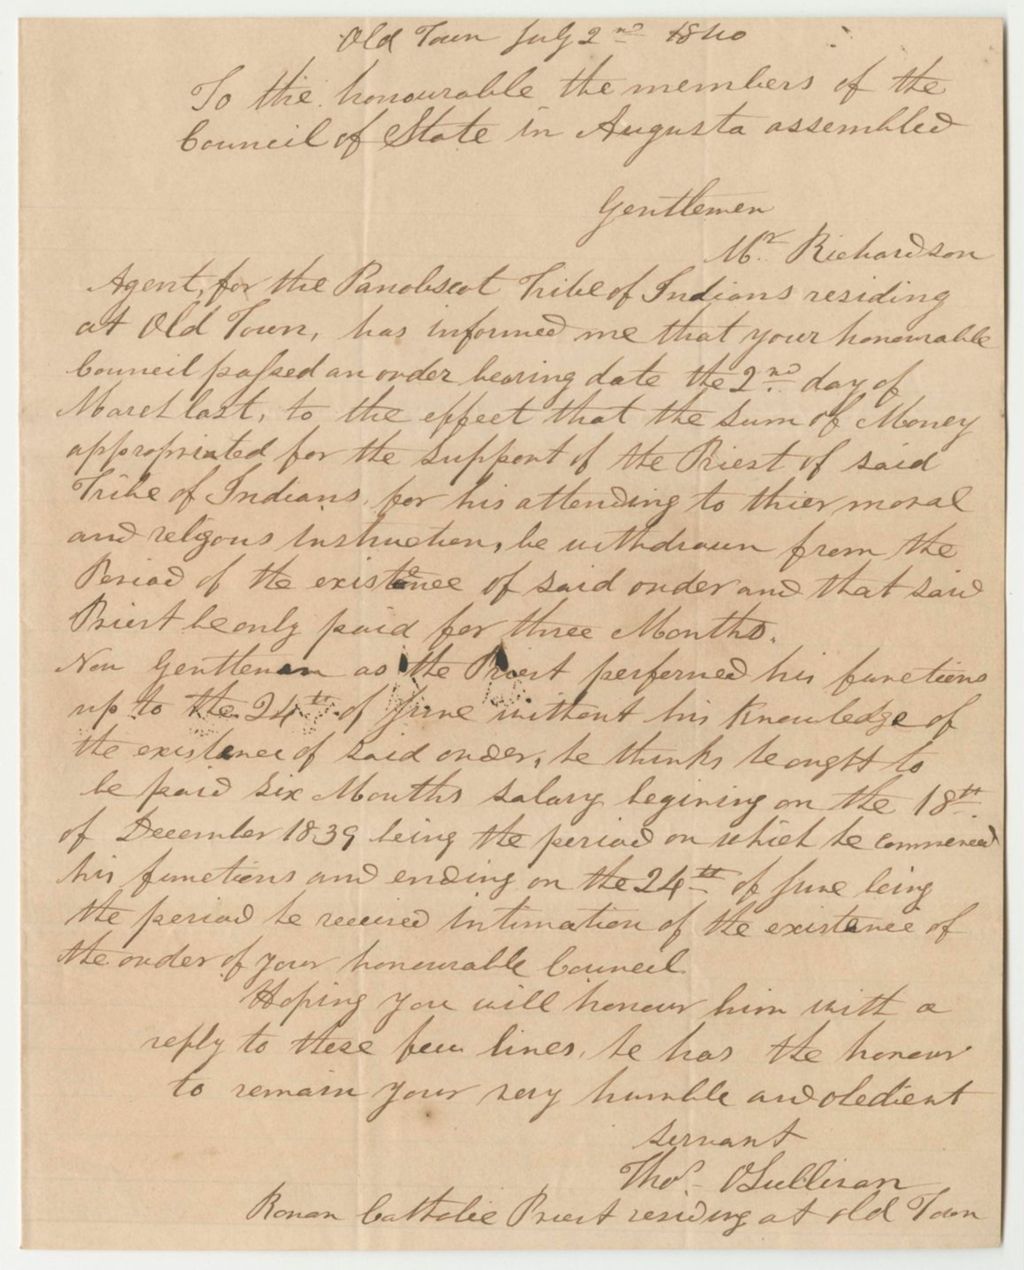 Old Town July 2nd 1840
To the honourable the members of the
Council of State in Augusta assembled
Gentlemen
Mr. Richardson
Agent, for the Panobscot Tribe of Indians residing
at Old Town, has informed me that your honourable
Council passed an order bearing date the 2nd day of
March last, to the effect that the sum of Money
appropriated for the support of the Priest of said
Tribe of Indians, for his attending to thier moral
and religous instruction, be withdrawn from the
Period of the existence of said order and that said
Priest be only paid for three Months.
Now Gentlemen as the Priest performed his functions
up to the 24th of June without his Knowledge of
the existence of said order, he thinks he ought to
be paid six Months salary begining on the 18th
of December 1839 being the period on which he commenced
his functions and ending on the 24th of June being
the period he received intimation of the existence of
the order of your honourable Council
Hoping you will honour him with a
reply to these few lines, he has the honour
to remain your very humble and obedient
servant
Thos. OSullivan
Roman Catholic Priest residing at old Town